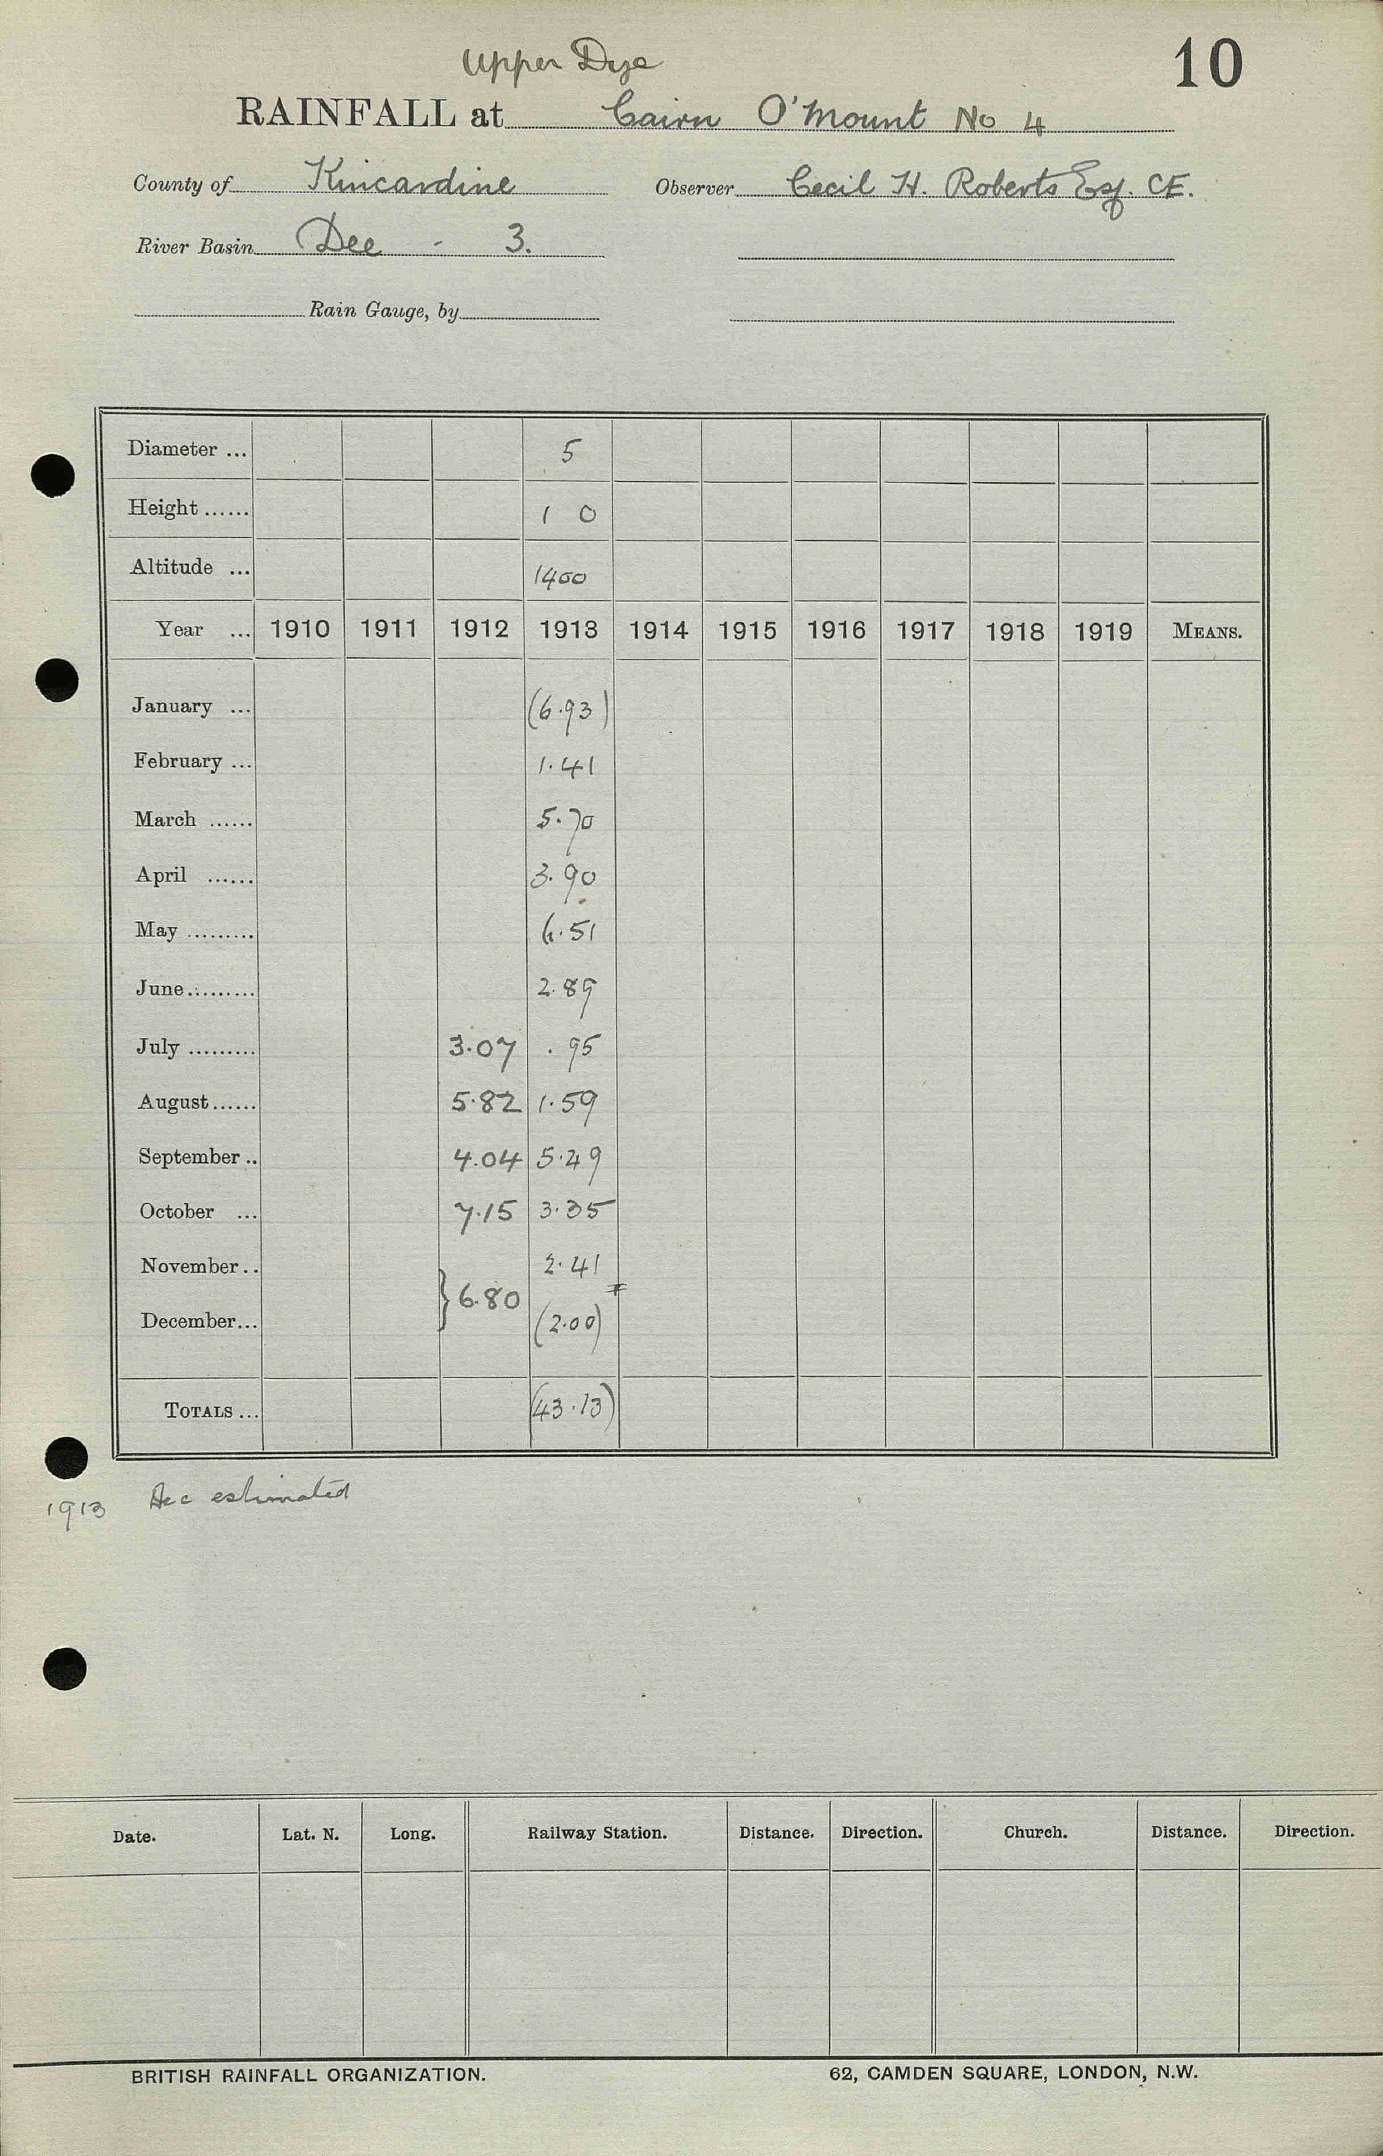 10
Upper Dye
RAINFALL at Cairn O'Mount No 4
County of Kincardine Observer Cecil H. Roberts Esq. CE.
River Basin Dee - 3.
Rain Gauge, by
Diameter ... 5
Height ...... 1 0
Altitude ... 1400
Year ... 1910 1911 1912 1913 1914 1915 1916 1917 1918 1919 MEANS.
January ... (6.93)
February ... 1.41
March ...... 5.70
April ...... 3.90
May ......... 6.51
June ......... 2.89
July ......... 3.07 .95
August ...... 5.82 1.59
September .. 4.04 5.49
October ... 7.15 3.35
November .. 2.41
} 6.80
December ... (2.00)
TOTALS ... (43.13)
1913 Dec estimated
Date. Lat. N. Long. Railway Station. Distance. Direction. Church. Distance. Direction.
BRITISH RAINFALL ORGANIZATION. 62, CAMDEN SQUARE, LONDON, N.W.